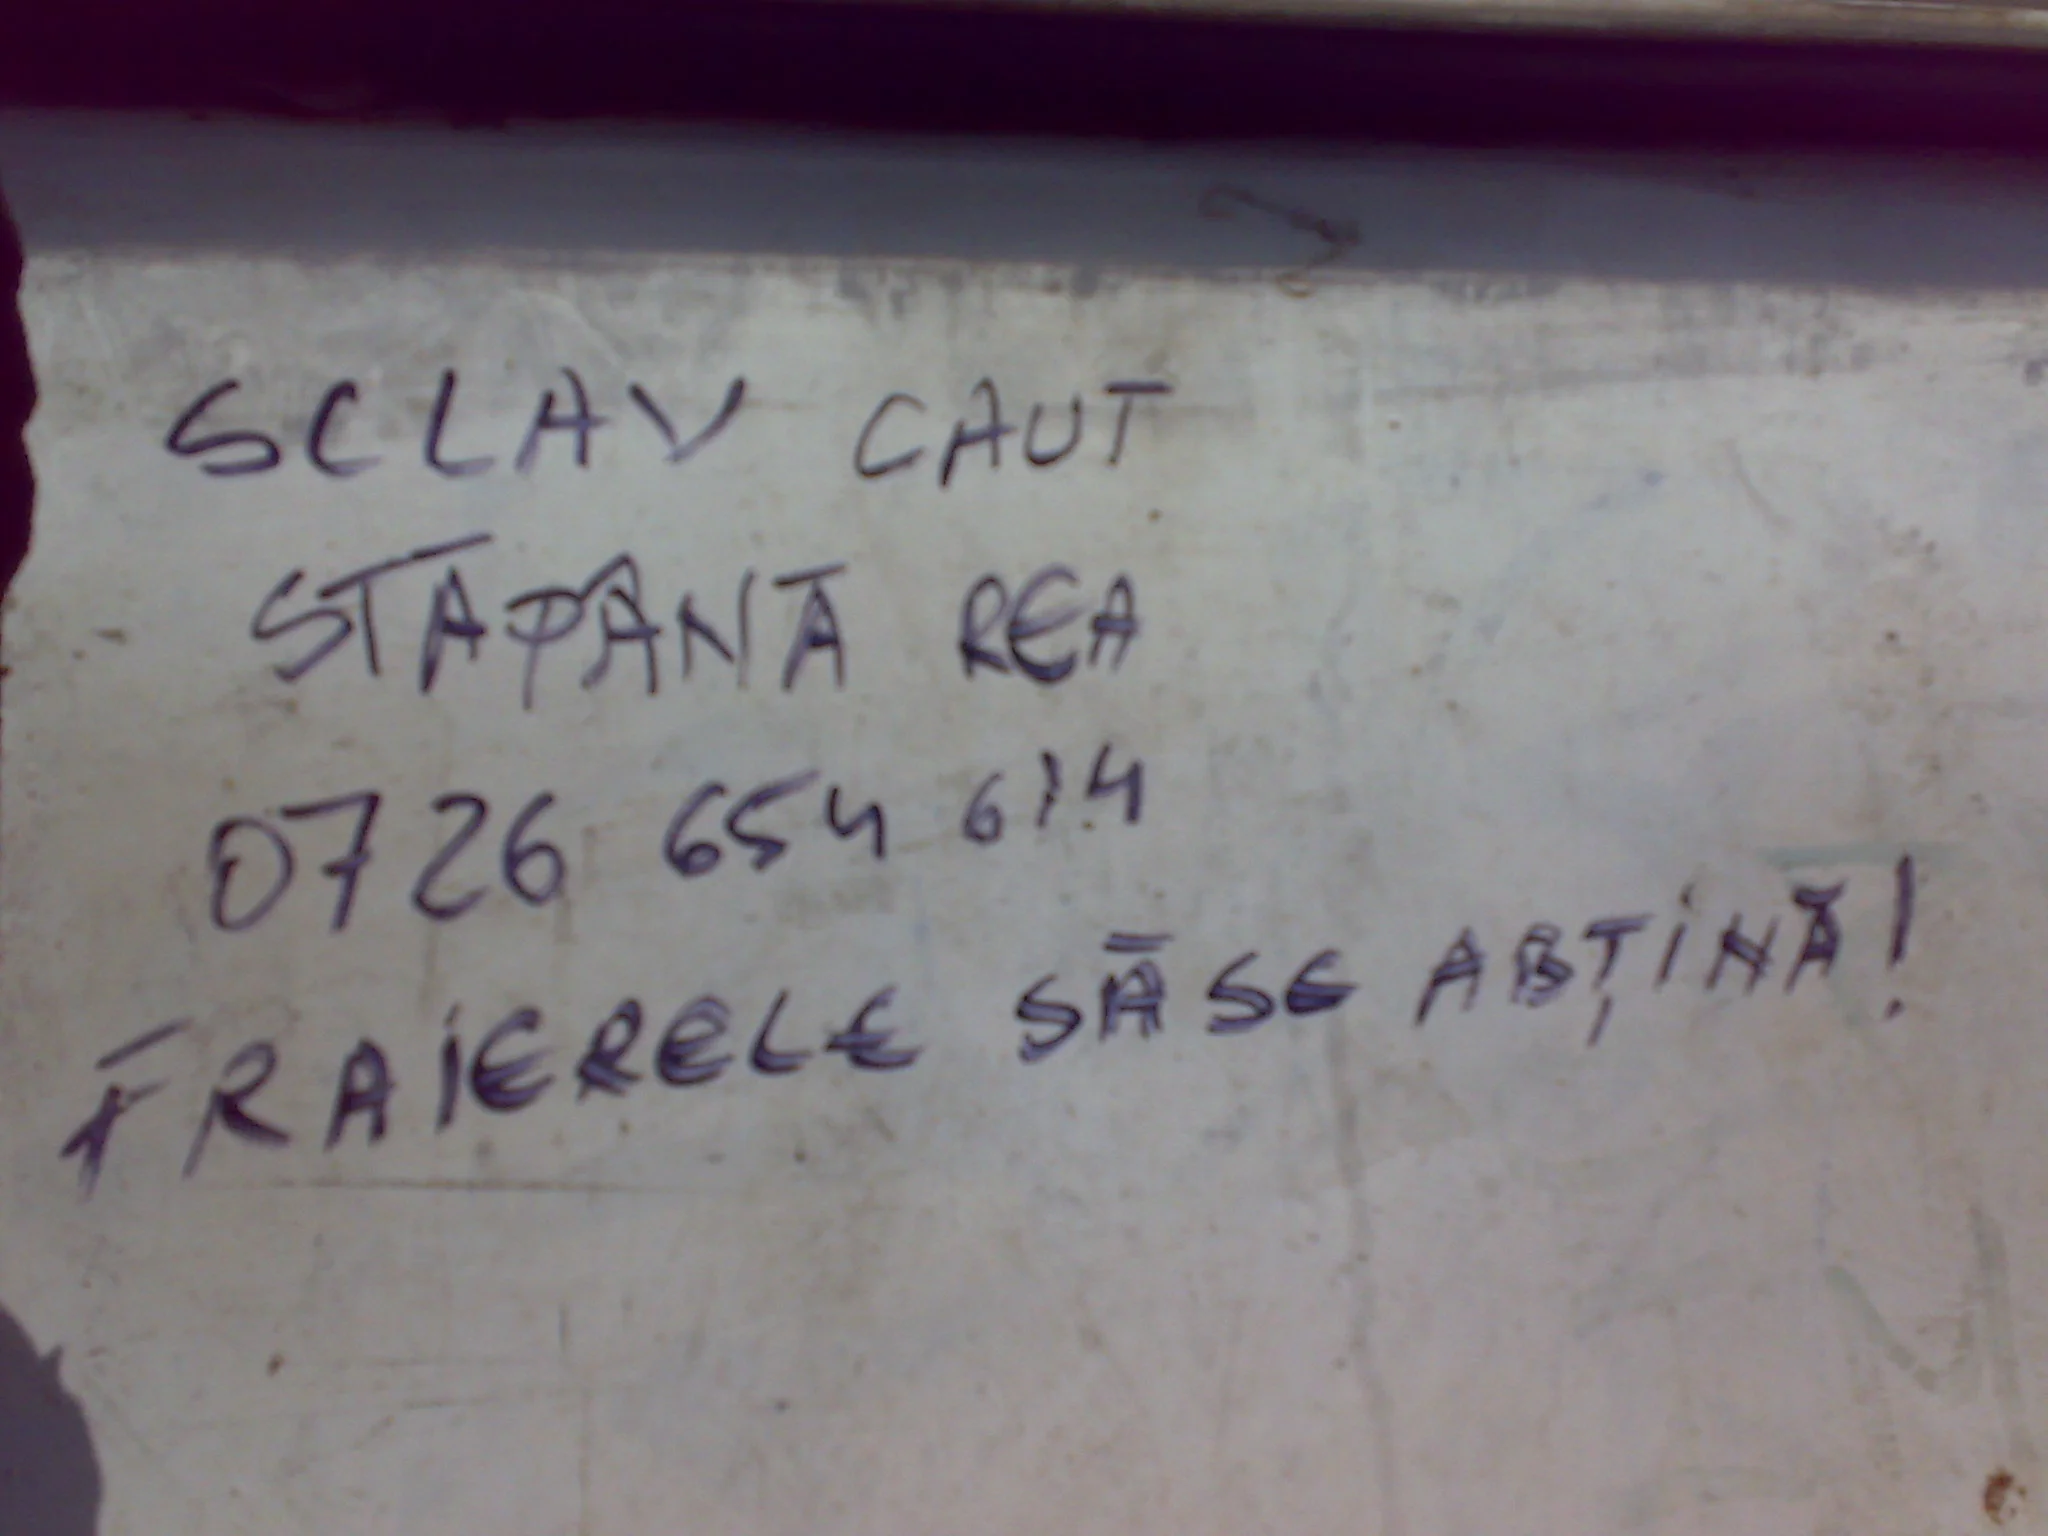 SCLAV CAUT
STĂPÂNĂ REA
0726 654 614
FRAIERELE SĂ SE ABȚINĂ!